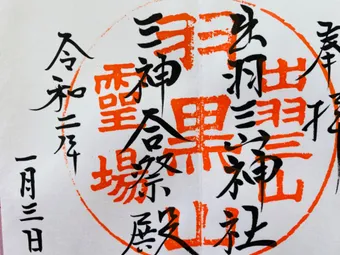 奉拝
出羽三山神社
三神合祭殿
令和二年
一月三日
出羽三山
羽黒山
霊場